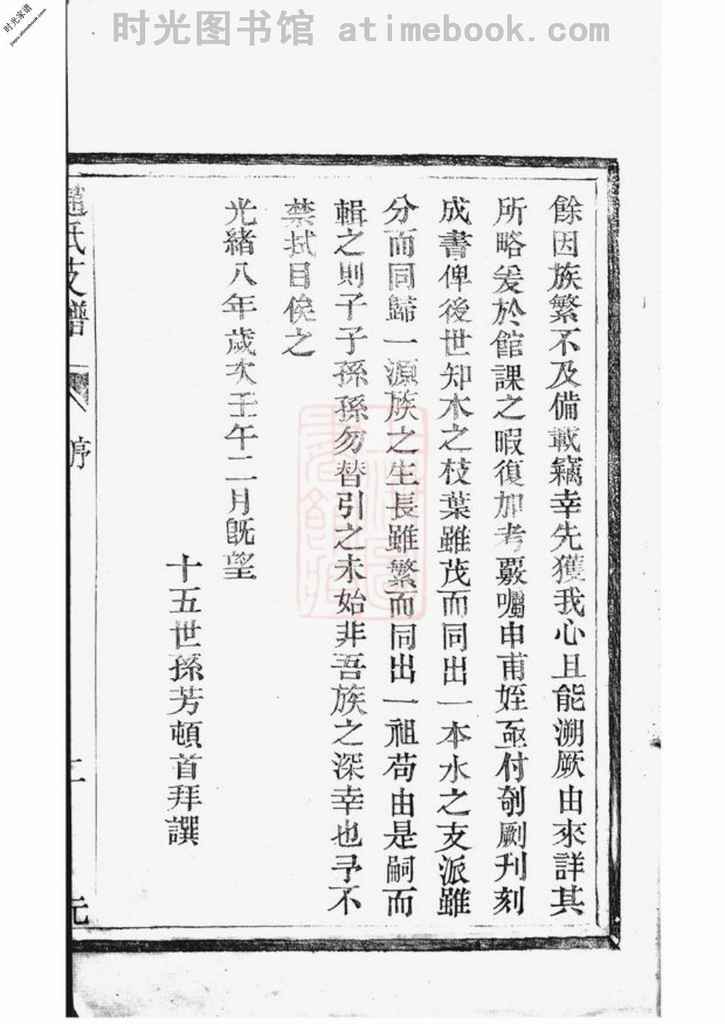 时光图书馆 atimebook.com
时光家谱
餘因族繁不及備載竊幸先獲我心且能溯厥由來詳其
所略爰於館課之暇復加考覈囑申甫姪亟付剞劂刊刻
成書俾後世知木之枝葉雖茂而同出一本水之支派雖
分而同歸一源族之生長雖繁而同出一祖苟由是嗣而
輯之則子子孫孫勿替引之未始非吾族之深幸也予不
禁拭目俟之
光緒八年歲次壬午二月旣望
十五世孫芳頓首拜譔
氏支譜
序
二